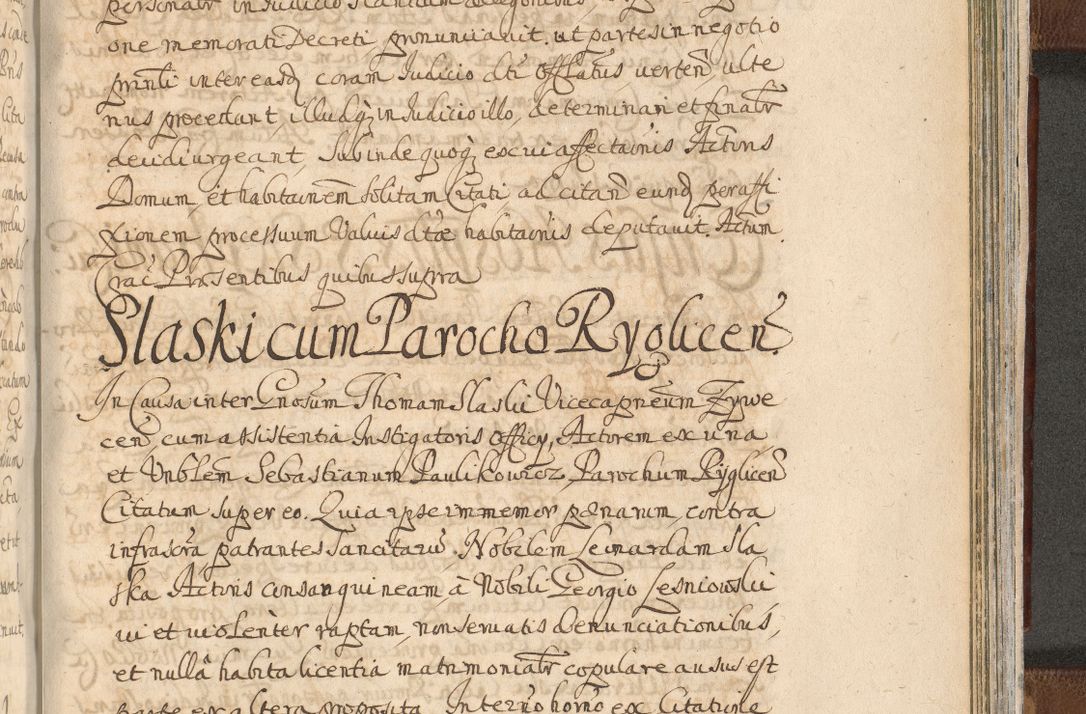 one memorati Decreti, pronunciavit. ut partes in negotio
prinli inter easq coram Judicio dti Offlatus verten ulte
rius procedant, illudq in Judicio illo, determinari et finalr
decidi urgeant, Subinde quoq ex vi affectaonis Actoris
Domum, et habitaonem solitam Citati, ad citand eund per affi
xionem processuum Valvis dtæ habitaonis deputavit. Actum
Crac Præsentibus quibus supra
Slaski cum Parocho Ryglicen
In Causa inter Gnosum Thomam Slaski Vicecapneum Zywe
cen, cum assistentia Instigatoris Officy, Actorem ex una
et Vnblem Sebastianum Paulikowicz Parochum Ryglicen
Citatum super eo. Quia ipse immemor pænarum, contra
infrascra patrantes sancitaru. Nobilem Leonardam Sla
ska Actoris consanguineam à Nobili Georgio Lesniowski
vi et violenter raptam, non servatis denunciationibus,
et nullâ habita licentia matrimonialr copulare ausus est
parte ex altera proposita. In termo horno ex Citatione